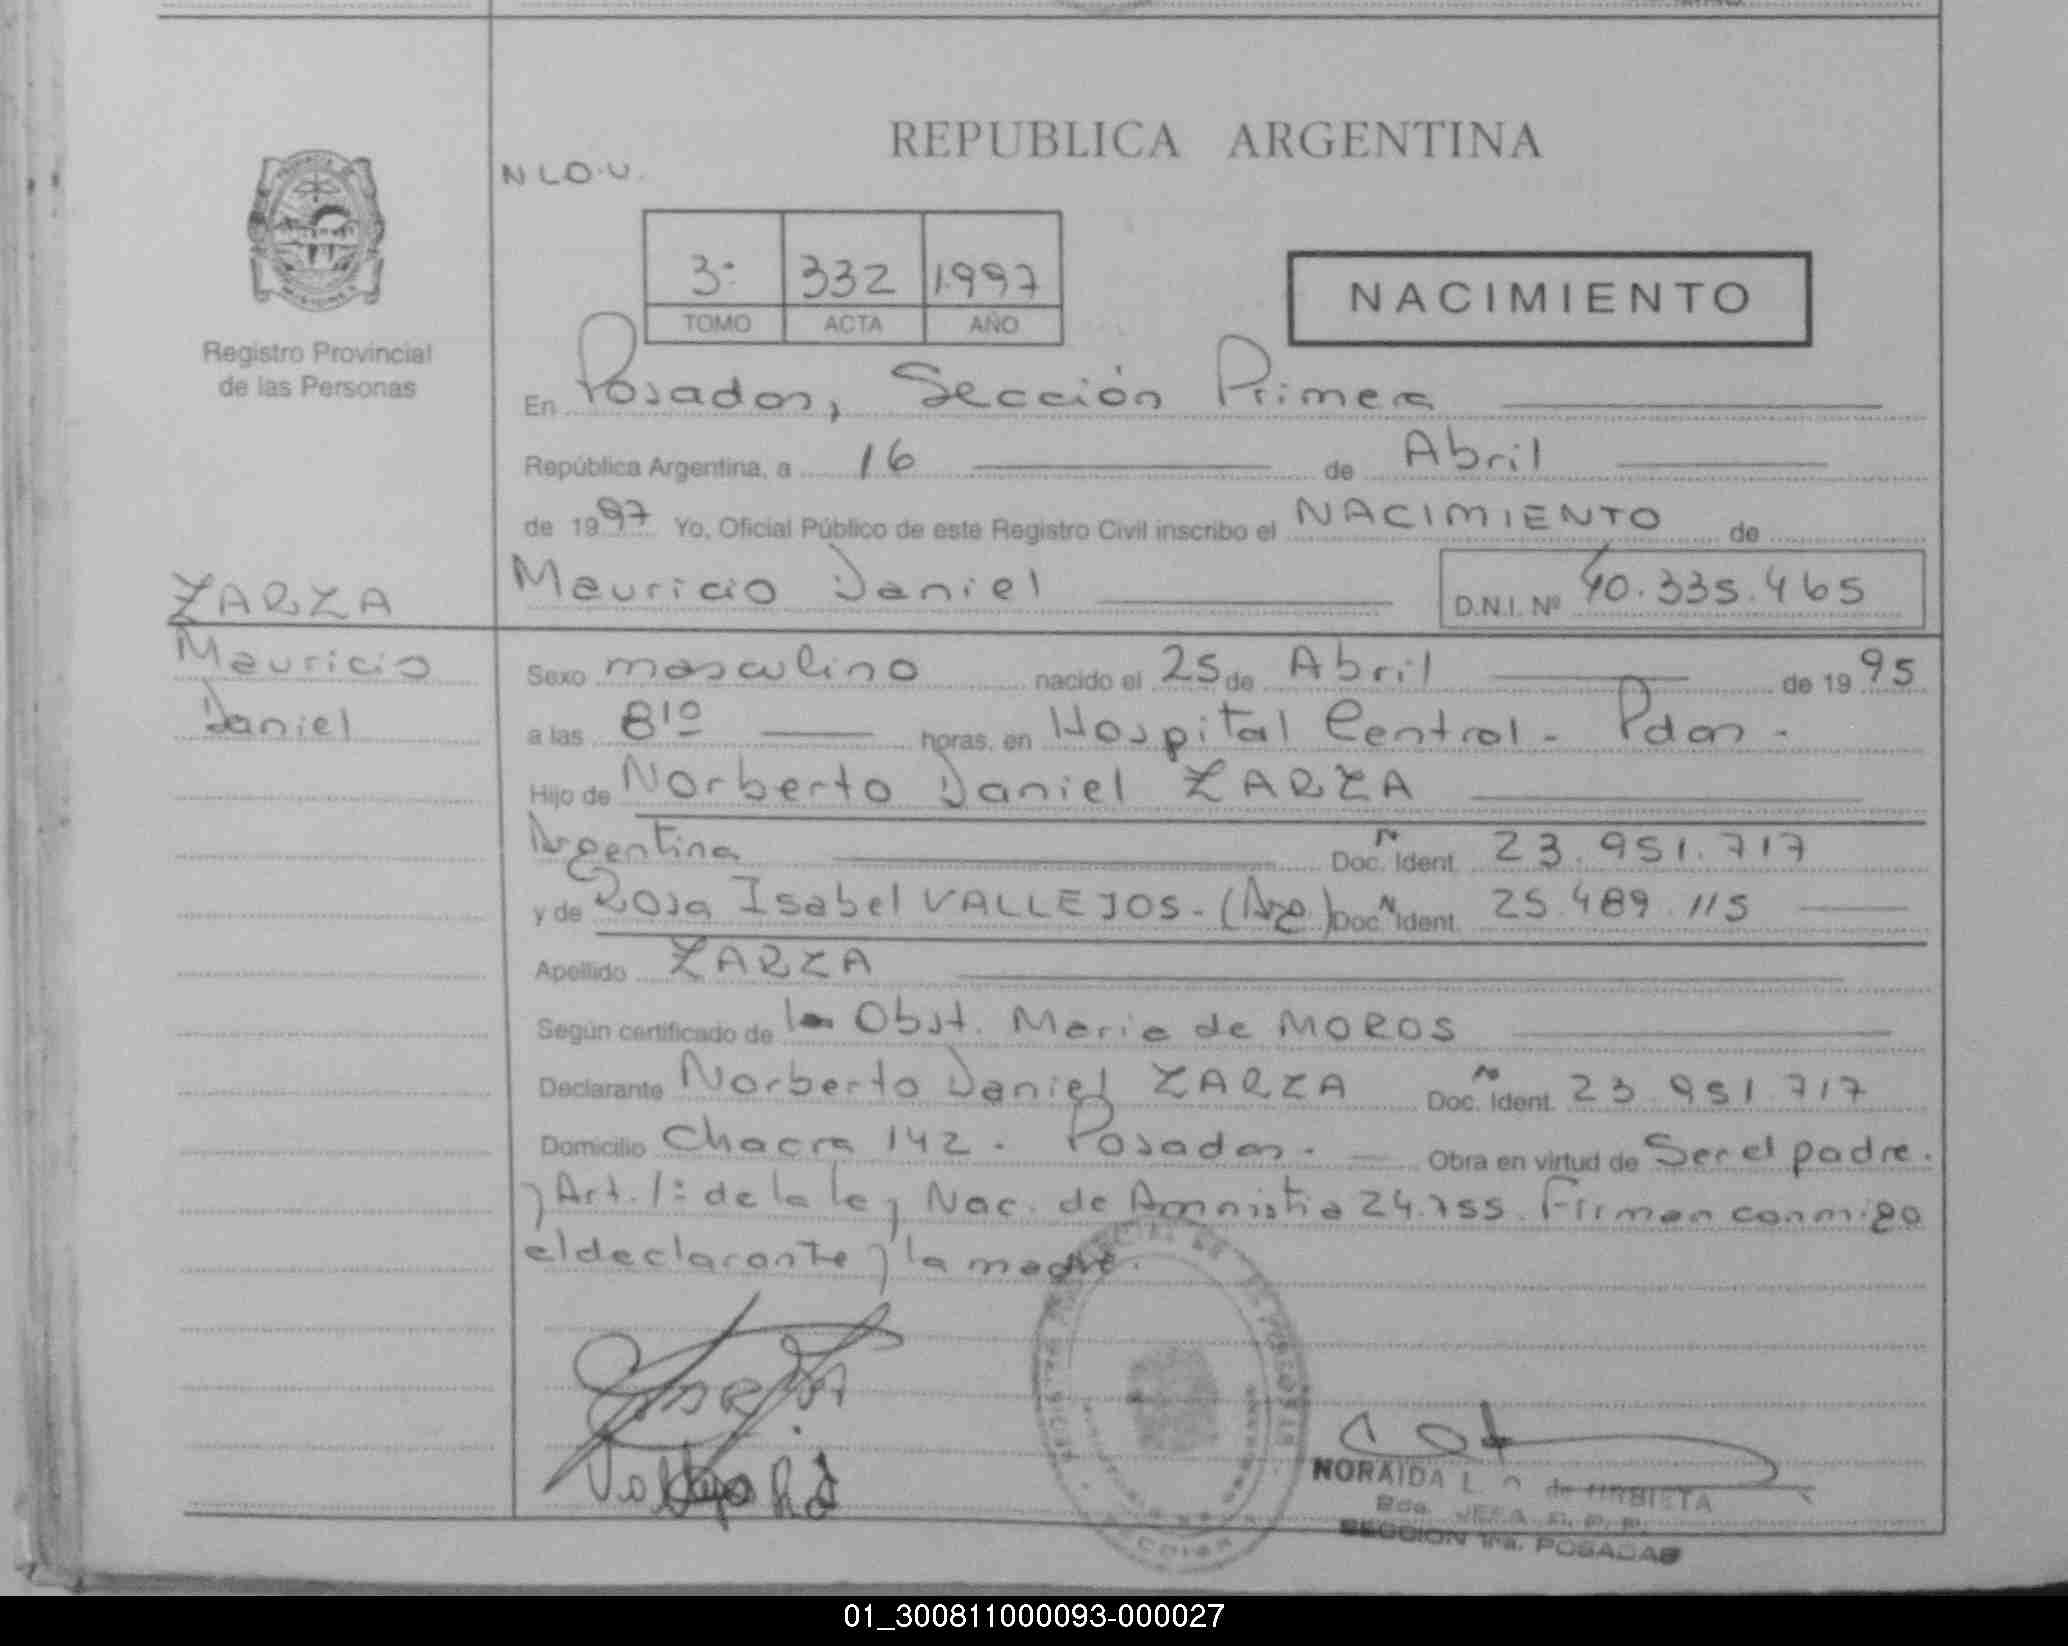 REPUBLICA ARGENTINA
N L O.U.
3º 332 1.997
TOMO ACTA AÑO
NACIMIENTO
Registro Provincial
de las Personas
En Posadas, Sección Primera
República Argentina, a 16 de Abril
de 1997 Yo, Oficial Público de este Registro Civil inscribo el NACIMIENTO de
Mauricio Daniel D.N.I. Nº 40.335.465
ZARZA
Mauricio
Daniel
Sexo masculino nacido el 25 de Abril de 1995
a las 8¹⁰ horas, en Hospital Central - Pdas -
Hijo de Norberto Daniel ZARZA
Argentina Doc. Ident. 23.951.717
y de Rosa Isabel VALLEJOS - (Arg.) Doc. Ident. 25.489.115
Apellido ZARZA
Según certificado de la Obst. Maria de MOROS
Declarante Norberto Daniel ZARZA Doc. Ident. 23.951.717
Domicilio Chacra 142 - Posadas - Obra en virtud de Ser el padre.
y Art. 1º de la ley Nac. de Amnistia 24.755. Firman conmigo
el declarante y la madre.
NORAIDA L. de URBIETA
JEFA R. P. P.
SECCION 1ra. POSADAS
01_300811000093-000027